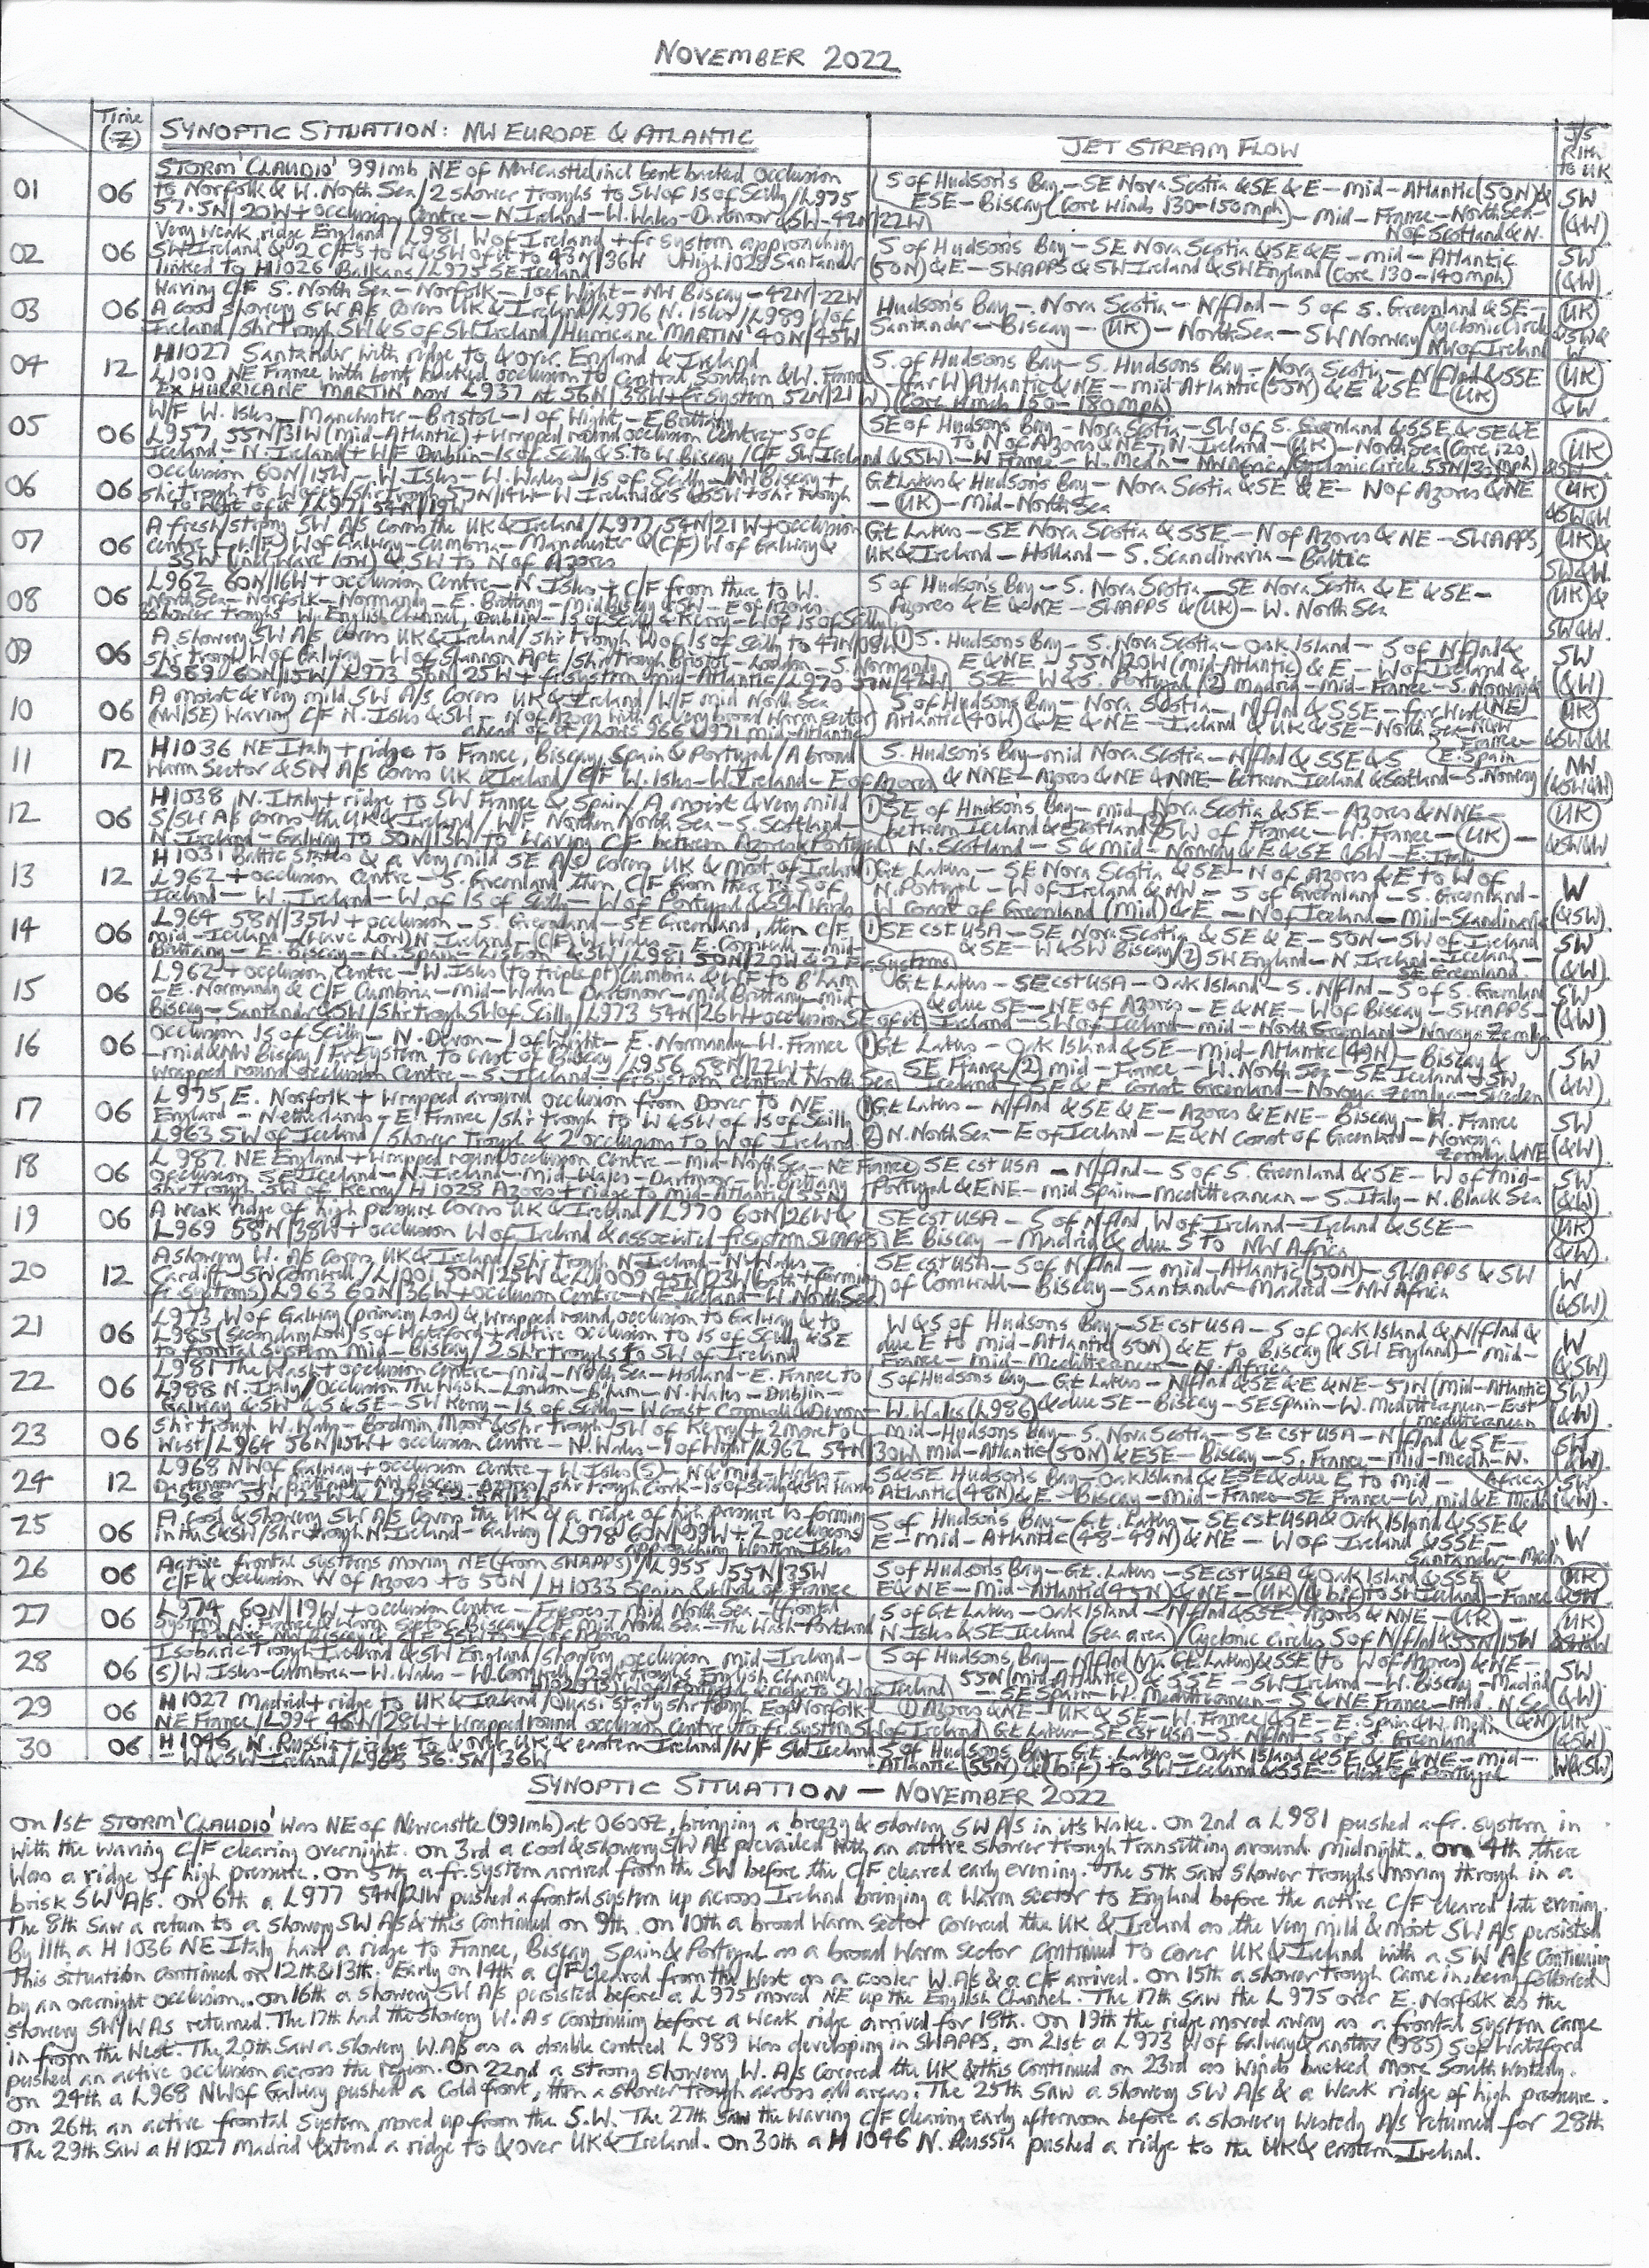 NOVEMBER 2022
Time (Z) SYNOPTIC SITUATION: NW EUROPE & ATLANTIC JET STREAM FLOW J/S Rlth to UK
01 06 STORM 'CLAUDIO' 991mb NE of Newcastle incl bent backed occlusion
to Norfolk & W. North Sea/2 shower troughs to SW of Is of Scilly/L975
57.5N/20W + occlusion Centre – N. Ireland – W. Wales – Dartmoor & SW – 42N/22W
S of Hudson's Bay – SE Nova Scotia & SE & E – mid-Atlantic (50N) &
ESE – Biscay (core winds 130–150mph) – mid-France – North Sea –
N of Scotland & N.
SW (&W)
02 06 Very weak ridge England/L981 W of Ireland + fr system approaching
SW Ireland & 2 C/Fs to W & SW of it to 43N/36W High 1028 Santander
linked to H1026 Balkans/L975 SE Iceland
S of Hudson's Bay – SE Nova Scotia & SE & E – mid-Atlantic
(50N) & E – SWAPPS & SW Ireland & SW England (core 130–140mph)
SW (&W)
03 06 Waving C/F S. North Sea – Norfolk – I of Wight – NW Biscay – 42N/22W
A cool showery SW A/S covers UK & Ireland/L976 N. Isles/L989 W of
Ireland/Shr trough SW & S of SW Ireland/Hurricane 'MARTIN' 40N/45W
Hudson's Bay – Nova Scotia – N/flnd – S of S. Greenland & SE –
Santander – Biscay – UK – North Sea – SW Norway/Cyclonic Circle
NW of Ireland
UK &SW& W
04 12 H1027 Santander with ridge to & over England & Ireland
L1010 NE France with bent backed occlusion to Central Southern & W. France
EX HURRICANE 'MARTIN' now L937 at 56N/38W + fr system 52N/21W
S. of Hudsons Bay – S. Hudsons Bay – Nova Scotia – N/flnd & SSE
– far W) Atlantic & NE – mid-Atlantic (55N) & E & SE – UK
(Core winds 150–180mph)
UK &W
05 06 W/F W. Isles – Manchester – Bristol – I of Wight – E. Brittany
L957 55N/31W (mid-Atlantic) + wrapped round occlusion Centre – S of
Iceland – N. Ireland + W/F Dublin – Is of Scilly & S to W Biscay/C/F SW Ireland & SSW
SE of Hudson's Bay – Nova Scotia – SW of S. Greenland & SSE & SE & E
to N of Azores & NE – N. Ireland – UK – North Sea (Core 120 mph)
– W France – W. Medn – NW Africa/Cyclonic Circle 55N/30W
UK &SW
06 06 Occlusion 60N/15W – W. Isles – W. Wales – Is of Scilly – NW Biscay +
to West of it/L971 54N/19W
Gt Lakes & Hudson's Bay – Nova Scotia & SE & E – N of Azores & NE
– UK – Mid-North Sea
UK &SW&W
07 06 A fresh/strong SW A/S covers the UK & Ireland/L977 54N/21W + occlusion
centre – (W/F) W of Galway – Cumbria – Manchester & (C/F) W of Galway &
SSW (incl wave low) & SW to N of Azores
Gt Lakes – SE Nova Scotia & SSE – N of Azores & NE – SWAPPS,
UK & Ireland – Holland – S. Scandinavia – Baltic
UK & SW&W.
08 06 L962 60N/16W + occlusion Centre – N. Isles + C/F from there to W.
North Sea – Norfolk – Normandy – E. Brittany – mid Biscay & SW – E of Azores.
Shower troughs W. English Channel, Dublin – Is of Scilly & Kerry – W of Is of Scilly
S of Hudson's Bay – S. Nova Scotia – SE Nova Scotia & E & SE –
Azores & E & NE – SWAPPS & UK – W. North Sea
UK & SW&W.
09 06 A showery SW A/S covers UK & Ireland/Shr trough W of Is of Scilly to 47N/08W
Shr trough W of Galway – W of Shannon Apt/Shr trough Bristol – London – S. Normandy
L969 60N/15W/L973 56N/25W + fr system mid-Atlantic/L970 57N/42W
(1) S. Hudsons Bay – S. Nova Scotia – Oak Island – S of N/flnd &
E & NE – 55N/20W (mid-Atlantic) & E – W of Ireland &
SSE – W & S. Portugal (2) Madrid – Mid-France – S. Norway
SW (&W)
10 06 A moist & very mild SW A/S covers UK & Ireland/W/F mid North Sea
(NW/SE) Waving C/F N. Isles & SW – N of Azores with a very broad warm sector
ahead of it/Lows 966 & 971 mid-Atlantic
S of Hudsons Bay – Nova Scotia – N/flnd & SSE – far West (NE)
Atlantic (40W) & E & NE – Ireland & UK & SE – North Sea – NW France –
E. Spain
UK &SW&W
11 12 H1036 NE Italy + ridge to France, Biscay, Spain & Portugal/A broad
Warm Sector & SW A/S covers UK & Ireland/C/F W. Isles – W Ireland – E of Azores
S. Hudson's Bay – mid Nova Scotia – N/flnd & SSE & S
& NNE – Azores & NE & NNE – between Iceland & Scotland – S. Norway
NW (&SW&W)
12 06 H1038 N. Italy + ridge to SW France & Spain/A moist & very mild
S/SW A/S covers the UK & Ireland/W/F Northern North Sea – S. Scotland –
N. Ireland – Galway to 50N/15W to waving C/F between Azores & Portugal
(1) SE of Hudson's Bay – mid-Nova Scotia & SE – Azores & NNE –
between Iceland & Scotland (2) SW of France – W. France – UK –
N. Scotland – S & mid-Norway & E & SE & SW – E. Italy
UK &SW&W
13 12 H1031 Baltic States & a very mild SE A/S covers UK & most of Ireland
L962 + occlusion Centre – S. Greenland, then C/F from there to S of
Iceland – W. Ireland – W of Is of Scilly – W of Portugal & SSW wards
(1) Gt Lakes – SE Nova Scotia & SE – N of Azores & E to W of
N. Portugal – W of Ireland & NW – S of Greenland – S. Greenland –
W coast of Greenland (mid) & E – N of Iceland – Mid-Scandinavia
W (&SW)
14 06 L964 58N/35W + occlusion – S. Greenland – SE Greenland, then C/F
mid-Iceland – (wave low) N. Ireland – (C/F) W. Wales – E. Cornwall – mid-
Brittany – E. Biscay – N. Spain – Lisbon & SW/L981 50N/20W & 2 Fr Systems
(1) SE CST USA – SE Nova Scotia & SE & E – 50N – SW of Ireland
& SE – W & SW Biscay (2) SW England – N. Ireland – Iceland –
SE Greenland
SW (&W)
15 06 L962 + occlusion Centre – W. Isles (to triple pt) Cumbria & W/F to B'ham
– E. Normandy & C/F Cumbria – mid-Wales – Dartmoor – mid Brittany – mid
Biscay – Santander & SW/Shr trough SW of Scilly/L973 54N/26W + occlusion SE of it
Gt Lakes – SE cst USA – Oak Island – S. N/flnd – S of S. Greenland
& due SE – NE of Azores – E & NE – W of Biscay – SWAPPS –
Ireland – SW of Iceland – mid-North Greenland – Novaya Zemlya
SW (&W)
16 06 Occlusion Is of Scilly – N. Devon – I of Wight – E. Normandy – W. France
– mid & NW Biscay/Fr System to west of Biscay/L956 58N/22W +
wrapped round occlusion Centre – S. Iceland – fr system central North Sea
(1) Gt Lakes – Oak Island & SE – mid-Atlantic (49N) – Biscay &
SE France/(2) mid-France – W. North Sea – SE Iceland & SW
Iceland – SE & E coast Greenland – Novaya Zemlya – Sweden
SW (&W)
17 06 L975 E. Norfolk + wrapped around occlusion from Dover to NE
England – Netherlands – E. France/Shr trough to W & SW of Is of Scilly
L963 SW of Iceland/Shower trough & 2 occlusions to W of Ireland.
(1) Gt Lakes – N/flnd & SE & E – Azores & ENE – Biscay – W. France
(2) N. North Sea – E of Iceland – E & N coast of Greenland – Novaya
Zemlya & NE
SW (&W)
18 06 L987 NE England + wrapped round occlusion Centre – mid-North Sea – NE France
Occlusion SE Iceland – N. Ireland – mid-Wales – Dartmoor – W. Brittany
Shr trough SW of Kerry/H1028 Azores + ridge to mid-Atlantic 55N
SE cst USA – N/flnd – S of S. Greenland & SE – W of mid-
Portugal & ENE – mid Spain – Mediterranean – S. Italy – N. Black Sea
SW (&W)
19 06 A weak ridge of high pressure covers UK & Ireland/L970 60N/26W &
L969 58N/38W + occlusion W of Ireland & associated fr system SWAPPS
SE cst USA – S of N/flnd W of Ireland – Ireland & SSE –
E Biscay – Madrid & due S to NW Africa
UK (&W)
20 12 A showery W. A/S covers UK & Ireland/Shr trough N Ireland – N. Wales –
Cardiff – SW Cornwall/L1001 50N/25W & L1009 45N/23W (both + forming
fr systems) L963 60N/36W + occlusion Centre – NE Iceland – W. North Sea
SE cst USA – S of N/flnd – mid-Atlantic (50N) – SWAPPS & SW
of Cornwall – Biscay – Santander – Madrid – NW Africa
W (&SW)
21 06 L973 W of Galway (primary low) & wrapped round occlusion to Galway & to
L985 (Secondary Low) S of Waterford + active occlusion to Is of Scilly & SE
to frontal system Mid-Biscay/2 Shr troughs to SW of Ireland
W & S of Hudsons Bay – SE cst USA – S of Oak Island & N/flnd &
due E to mid-Atlantic (50N) & E to Biscay (& SW England) – mid-
France – mid-Mediterranean – N. Africa
W (&SW)
22 06 L981 The Wash + occlusion Centre – mid-North Sea – Holland – E. France to
L988 N. Italy/Occlusion The Wash – London – B'ham – N. Wales – Dublin –
Galway & SW & S & SE – SW Kerry – Is of Scilly – W coast Cornwall & Devon –
W. Wales (L986)
S of Hudsons Bay – Gt Lakes – N/flnd & SE & E & NE – 51N (Mid-Atlantic)
& due SE – Biscay – SE Spain – W. Mediterranean – East
Mediterranean
SW (&W)
23 06 Shr trough W. Wales – Bodmin Moor & Shr trough SW of Kerry + 2 more to
West/L964 56N/15W + occlusion Centre – N. Wales – I of Wight/L962 54N/30W
mid-Hudsons Bay – S. Nova Scotia – SE cst USA – N/flnd & SE –
mid-Atlantic (50N) & ESE – Biscay – S. France – Mid-Medn – N. Africa
SW (&W)
24 12 L968 NW of Galway + occlusion Centre – W. Isles (S) – N & mid-Wales –
S & SE Hudsons Bay – Oak Island & ESE & due E to mid-
Atlantic (48N) & E – Biscay – Mid-France – SE France – W, mid & E Medn
SW (&W).
25 06 A cool & showery SW A/S covers the UK & a ridge of high pressure is forming
in the S & SW/Shr trough N Ireland – Galway/L978 60N/ + 2 occlusions
approaching Western Isles
S of Hudson's Bay – Gt. Lakes – SE cst USA & Oak Island & SSE &
E – mid-Atlantic (48–49N) & NE – W of Ireland & SSE –
Santander – Medn
W
26 06 Active frontal systems moving NE (from SWAPPS)/L955 55N/35W
C/F & occlusion W of Azores to 50N/H1033 Spain & of France
S of Hudson's Bay – Gt. Lakes – SE cst USA & Oak Island & SSE &
E & NE – Mid-Atlantic (45N) & NE – UK (& bif) to SW Iceland) – France
UK &SW
27 06 L974 60N/19W + occlusion Centre – Faeroes – Mid North Sea – frontal
System N. France & Warm Sector Biscay/C/F mid North Sea – The Wash – Portland
S of Gt Lakes – Oak Island – N/flnd & SSE – Azores & NNE – UK –
N. Isles & SE Iceland (Sea area)/Cyclonic circles S of N/flnd & 55N/15W
UK
28 06 Isobaric trough Ireland & SW England/Showery occlusion mid-Ireland –
(S) W. Isles – Cumbria – W. Wales – W. Cornwall/2 shr troughs English Channel
S of Hudsons Bay – N/flnd (via Gt. Lakes) & SSE (to W of Azores) & NE –
55N (mid-Atlantic) & SSE – SW Ireland – W. Biscay – Madrid
– SE Spain – W. Mediterranean – S & NE France – mid. N. Sea
SW (&W)
29 06 H1027 Madrid + ridge to UK & Ireland/Quasi-staty shr trough E of Norfolk –
NE France/L994 46N/28W + wrapped round occlusion Centre to fr. system SW of Ireland
(1) Azores & NE – UK & SE – W. France & SE – E. Spain & W. Medn (&N)
Gt Lakes – SE cst USA – S. N/flnd – S of S. Greenland
UK (&SW)
30 06 H1046 W. Russia + ridge to & over UK & eastern Ireland/W/F SW Iceland
– W & SW Ireland/L963 56.5N/36W
S of Hudsons Bay – Gt. Lakes – Oak Island & SE & E & NE – mid-
Atlantic (55N) & (bif) to SW Iceland & SSE – West of Portugal
W(&SW)
SYNOPTIC SITUATION – NOVEMBER 2022
On 1st STORM 'CLAUDIO' was NE of Newcastle (991mb) at 0600Z, bringing a breezy & showery SW A/S in it's wake. On 2nd a L981 pushed a fr. system in
with the waving C/F clearing overnight. On 3rd a cool & showery SW A/S prevailed with an active shower trough transitting around midnight. On 4th there
was a ridge of high pressure. On 5th a fr. system arrived from the SW before the C/F cleared early evening. The 5th saw shower troughs moving through in a
brisk SW A/S. On 6th a L977 54N/21W pushed a frontal system up across Ireland bringing a warm sector to England before the active C/F cleared late evening.
The 8th saw a return to a showery SW A/S & this continued on 9th. On 10th a broad warm sector covered the UK & Ireland as the very mild & moist SW A/S persisted
By 11th a H1036 NE Italy had a ridge to France, Biscay, Spain & Portugal as a broad warm sector continued to cover UK & Ireland with a SW A/S continuing
This situation continued on 12th & 13th. Early on 14th a C/F cleared from the West as a cooler W. A/S & a C/F arrived. On 15th a shower trough came in, being followed
by an overnight occlusion. On 16th a showery SW A/S persisted before a L975 moved NE up the English Channel. The 17th saw the L975 over E. Norfolk as the
showery SW/W A/S returned. The 17th had the showery W. A/s continuing before a weak ridge arrived for 18th. On 19th the ridge moved away as a frontal system came
in from the West. The 20th saw a showery W. A/S as a double centred L989 was developing in SWAPPS. On 21st a L973 W of Galway & another (985) S of Waterford
pushed an active occlusion across the region. On 22nd a strong showery W. A/s covered the UK & this continued on 23rd as winds backed more South Westerly.
On 24th a L968 NW of Galway pushed a Cold front, then a shower trough across all areas. The 25th saw a showery SW A/S & a weak ridge of high pressure.
On 26th an active frontal system moved up from the S.W. The 27th saw the waving C/F clearing early afternoon before a showery Westerly A/s returned for 28th
The 29th saw a H1027 Madrid extend a ridge to & over UK & Ireland. On 30th a H1046 N. Russia pushed a ridge to the UK & eastern Ireland.